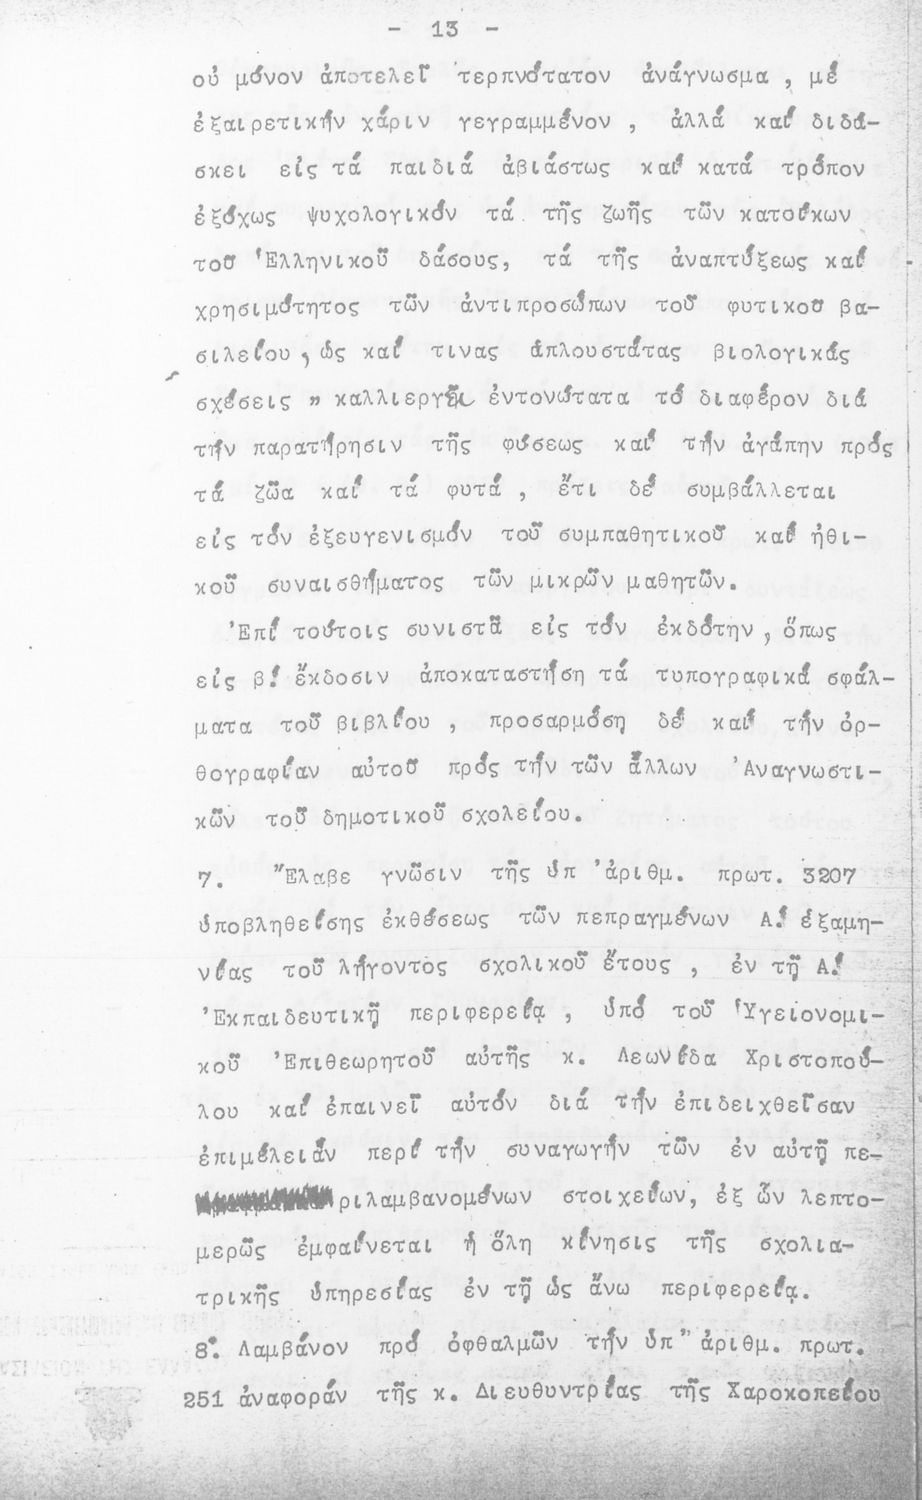 - 13 -
οὐ μόνον ἀποτελεῖ τερπνότατον ἀνάγνωσμα , μέ
ἐξαιρετικήν χάριν γεγραμμένον , ἀλλά καί διδά-
σκει εἰς τά παιδιά ἀβιάστως καί κατά τρόπον
ἐξόχως ψυχολογικόν τά τῆς ζωῆς τῶν κατοίκων
τοῦ Ἑλληνικοῦ δάσους, τά τῆς ἀναπτύξεως καί
χρησιμότητος τῶν ἀντιπροσώπων τοῦ φυτικοῦ βα-
σιλείου , ὡς καί τινας ἁπλουστάτας βιολογικάς
σχέσεις " καλλιεργεῖ ἐντονώτατα τό διαφέρον διά
τήν παρατήρησιν τῆς φύσεως καί τήν ἀγάπην πρός
τά ζῶα καί τά φυτά , ἔτι δέ συμβάλλεται
εἰς τόν ἐξευγενισμόν τοῦ συμπαθητικοῦ καί ἠθι-
κοῦ συναισθήματος τῶν μικρῶν μαθητῶν.
Ἐπί τούτοις συνιστᾶ εἰς τόν ἐκδότην , ὅπως
εἰς β! ἔκδοσιν ἀποκαταστήση τά τυπογραφικά σφάλ-
ματα τοῦ βιβλίου , προσαρμόση δέ καί τήν ὀρ-
θογραφίαν αὐτοῦ πρός τήν τῶν ἄλλων Ἀναγνωστι-
κῶν τοῦ δημοτικοῦ σχολείου.
7. Ἔλαβε γνῶσιν τῆς ὑπ'ἀριθμ. πρωτ. 3207
ὑποβληθείσης ἐκθέσεως τῶν πεπραγμένων Α! ἑξαμη-
νίας τοῦ λήγοντος σχολικοῦ ἔτους , ἐν τῇ Α!
Ἐκπαιδευτικῇ περιφερείᾳ , ὑπό τοῦ Ὑγειονομι-
κοῦ Ἐπιθεωρητοῦ αὐτῆς κ. Λεωνίδα Χριστοπού-
λου καί ἐπαινεῖ αὐτόν διά τήν ἐπιδειχθεῖσαν
ἐπιμέλειάν περί τήν συναγωγήν τῶν ἐν αὐτῇ πε-
ριλαμβανομένων στοιχείων, ἐξ ὧν λεπτο-
μερῶς ἐμφαίνεται ἡ ὅλη κίνησις τῆς σχολια-
τρικῆς ὑπηρεσίας ἐν τῇ ὡς ἄνω περιφερείᾳ.
8. Λαμβάνον πρό ὀφθαλμῶν τήν ὑπ" ἀριθμ. πρωτ.
251 ἀναφοράν τῆς κ. Διευθυντρίας τῆς Χαροκοπείου